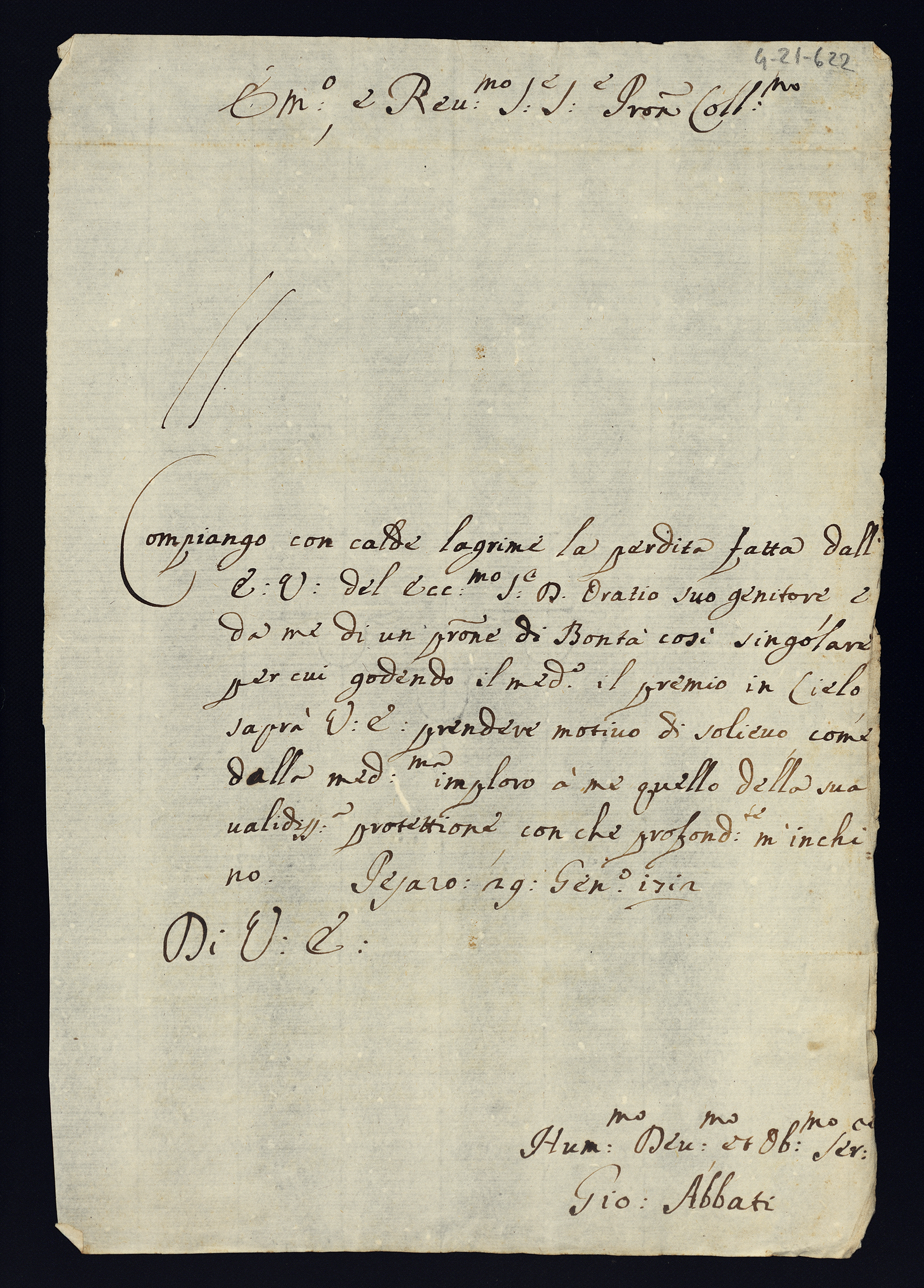 G-21-622
Em:o e Reu:mo S:e S:e Pron̄ Coll:mo
Compiango con calde lagrime la perdita fatta dall'
E: V: del Ecc:mo S:e D. Orazio suo genitore e
da me di un prōne di Bontà così singolare
per cui godendo il med.o il premio in Cielo
saprà V: E: prendere motivo di solieuo come
dalla med:ma imploro à me quello della sua
validiss:a protettione con che profond:te m'inchi
no. Pesaro: 29: Gen:o 1712
Di V: E:
Hum:mo Deu:mo et Ob:mo Ser:re
Gio: Abbati